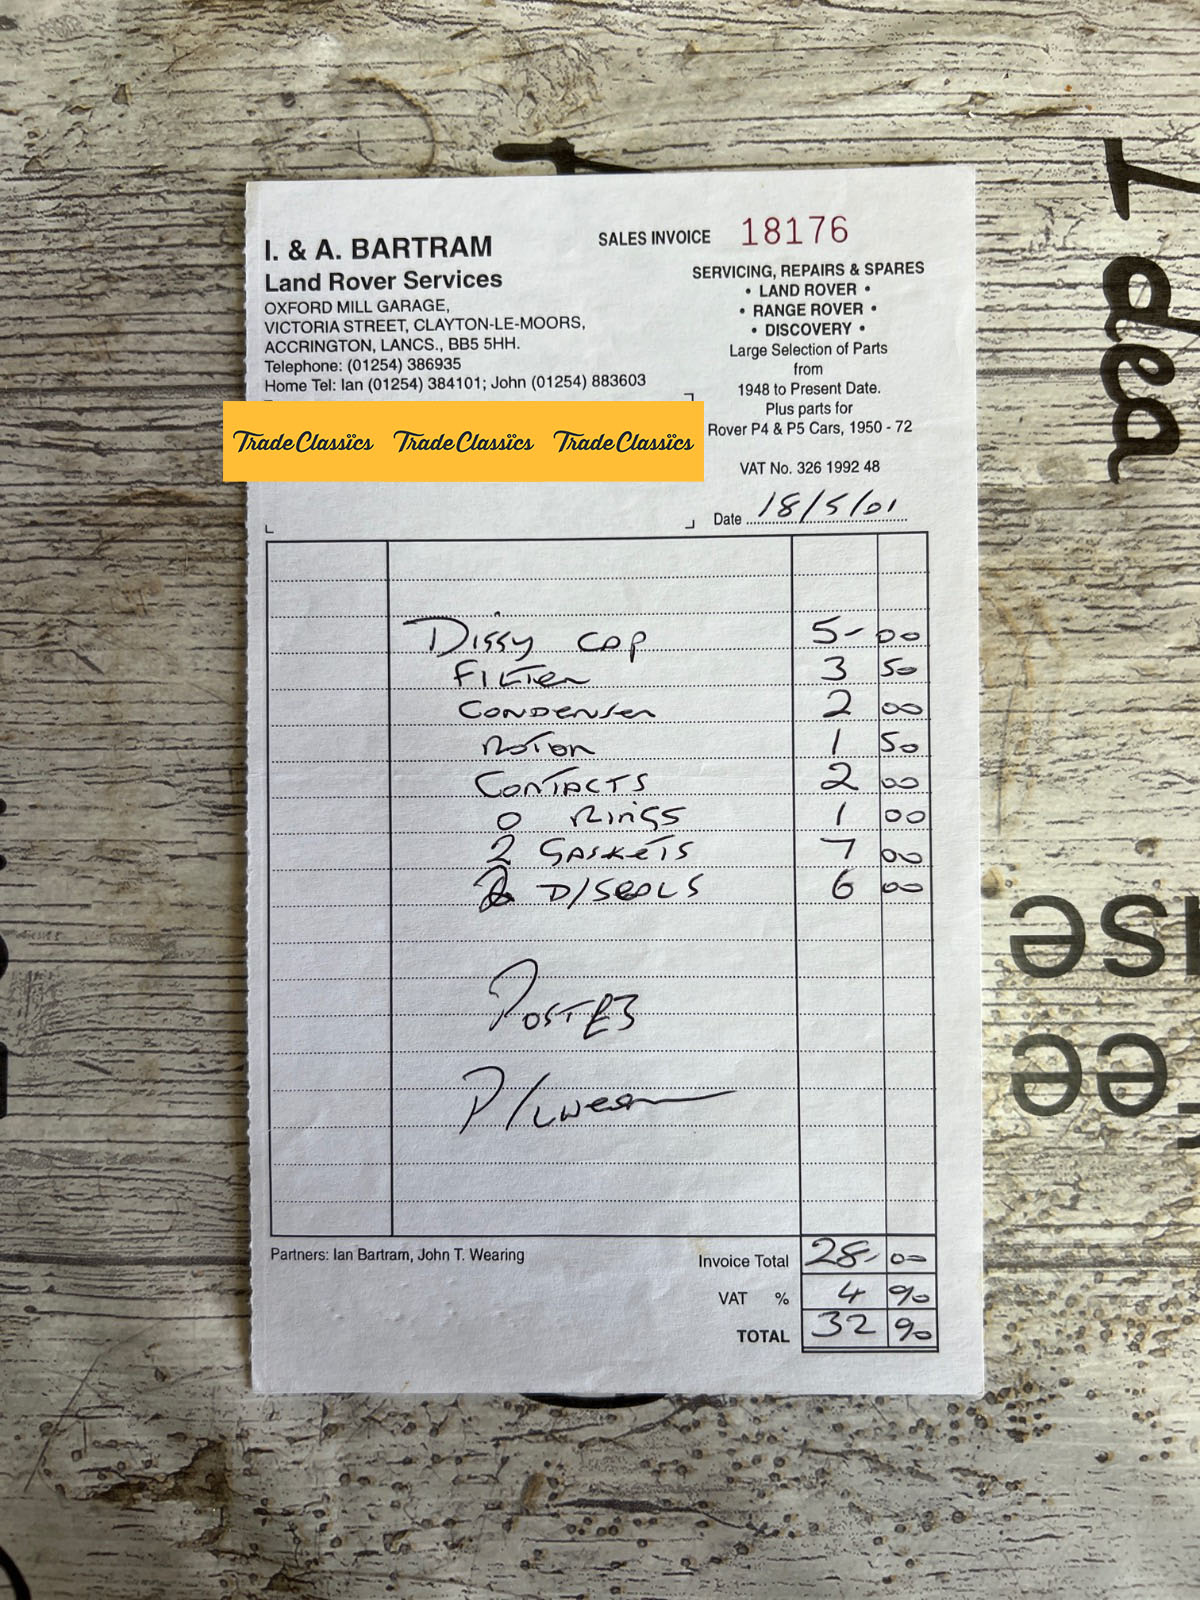 I. & A. BARTRAM
Land Rover Services
OXFORD MILL GARAGE,
VICTORIA STREET, CLAYTON-LE-MOORS,
ACCRINGTON, LANCS., BB5 5HH.
Telephone: (01254) 386935
Home Tel: Ian (01254) 384101; John (01254) 883603
SALES INVOICE 18176
SERVICING, REPAIRS & SPARES
• LAND ROVER •
• RANGE ROVER •
• DISCOVERY •
Large Selection of Parts
from
1948 to Present Date.
Plus parts for
Rover P4 & P5 Cars, 1950 - 72
VAT No. 326 1992 48
Date 18/5/01
Trade Classics Trade Classics Trade Classics
Dissy cap 5-00
Filter 3 50
Condenser 2 00
Rotor 1 50
Contacts 2 00
O Rings 1 00
2 Gaskets 7 00
2 D/Seals 6 00
Post £3
Partners: Ian Bartram, John T. Wearing
Invoice Total 28-00
VAT % 4 90
TOTAL 32 90
Idea
use
ee